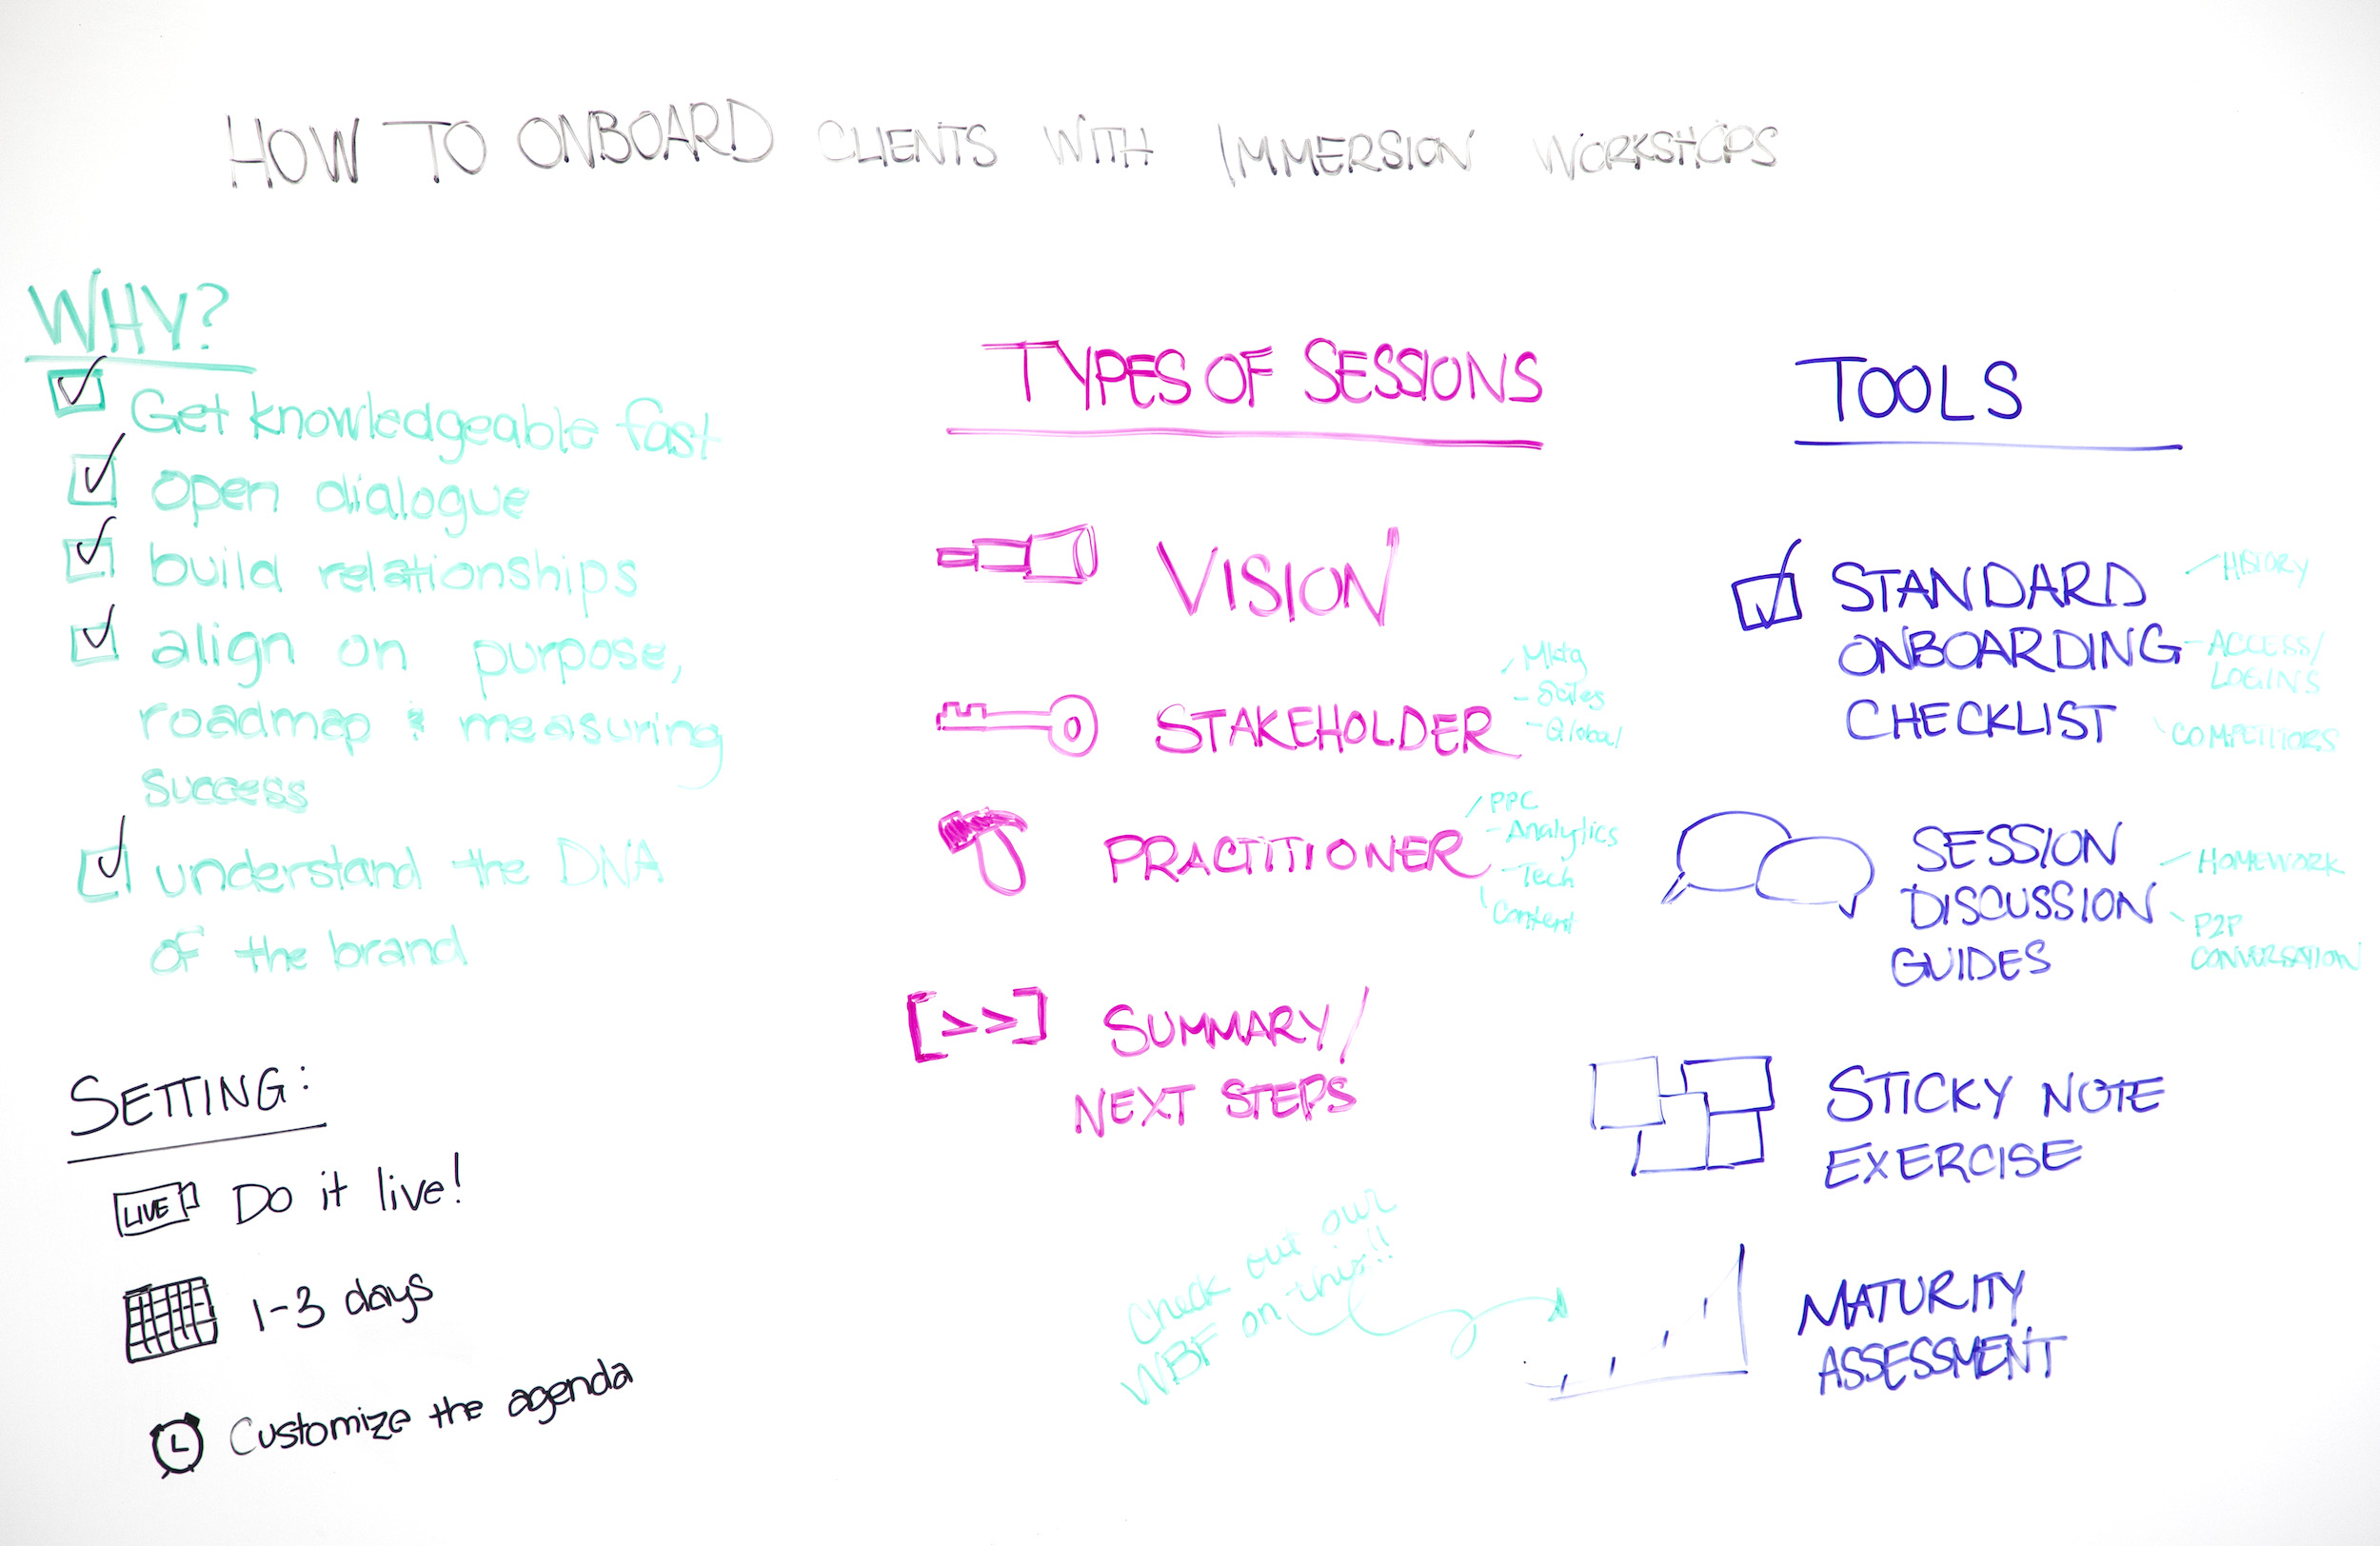 HOW TO ONBOARD CLIENTS WITH IMMERSION WORKSHOPS
WHY?
Get knowledgeable fast
open dialogue
build relationships
align on purpose,
roadmap & measuring
success
understand the DNA
of the brand
SETTING:
LIVE
Do it live!
1-3 days
Customize the agenda
TYPES OF SESSIONS
VISION
STAKEHOLDER
Mktg
- Sales
- Global
PRACTITIONER
PPC
- Analytics
- Tech
Content
[>>]
SUMMARY/
NEXT STEPS
Check out our
WBF on this!!
TOOLS
STANDARD
ONBOARDING
CHECKLIST
- HISTORY
- ACCESS/
LOGINS
COMPETITORS
SESSION
DISCUSSION
GUIDES
- HOMEWORK
P2P
CONVERSATION
STICKY NOTE
EXERCISE
MATURITY
ASSESSMENT